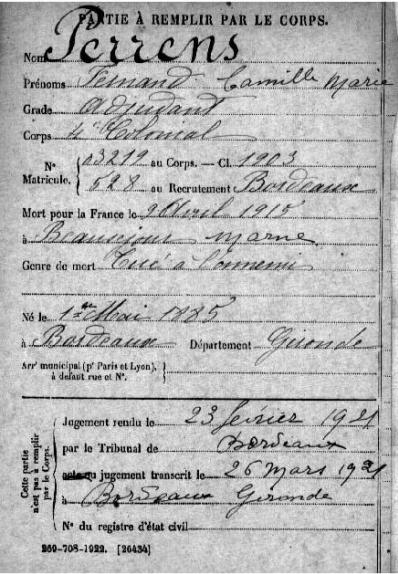 PARTIE À REMPLIR PAR LE CORPS.
Nom Perrens
Prénoms Fernand Camille Marie
Grade Adjudant
Corps 4e Colonial
N° Matricule. { 03299 au Corps. — Cl. 1903
528 au Recrutement Bordeaux
Mort pour la France le 9 Avril 1915
à Beauséjour Marne
Genre de mort Tué à l'ennemi
Né le 1er Mai 1885
à Bordeaux Département Gironde
Arrt municipal (pr Paris et Lyon), à défaut rue et N°. }
Cette partie n'est pas à remplir par le Corps.
Jugement rendu le 23 février 1921
par le Tribunal de Bordeaux
acte ou jugement transcrit le 26 mars 1921
à Bordeaux Gironde
N° du registre d'état civil
269-708-1922. [26434]